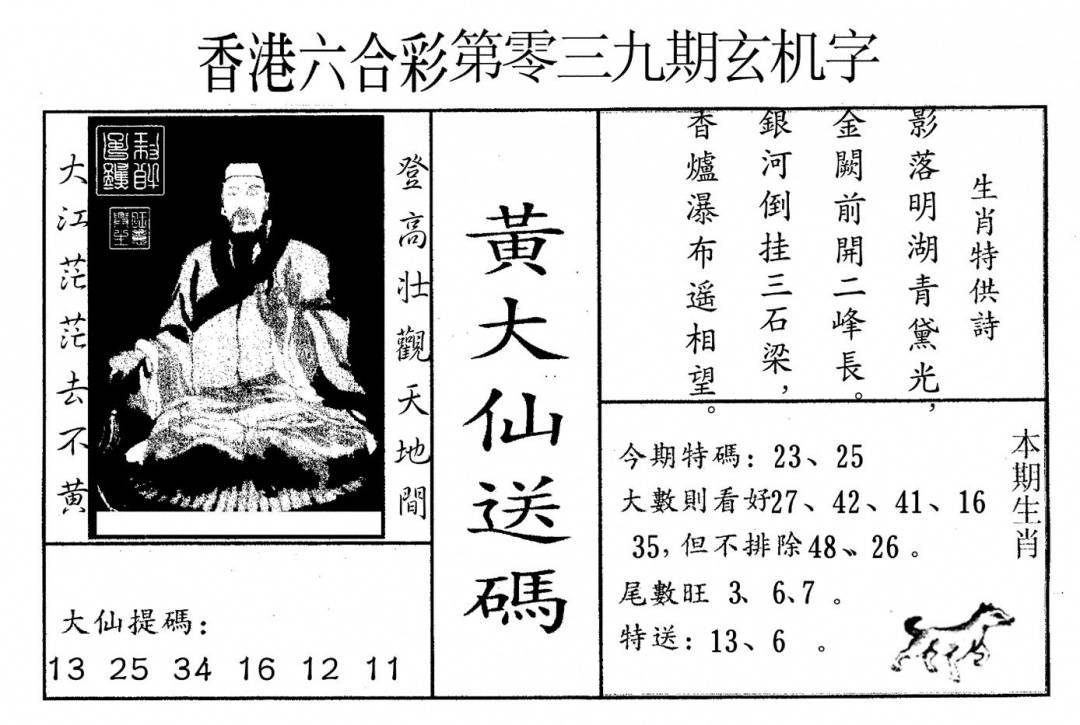 香港六合彩第零三九期玄机字
登高壯觀天地間
大江茫茫去不黃
黃大仙送碼
生肖特供詩
影落明湖青黛光，
金闕前開二峰長。
銀河倒挂三石梁，
香爐瀑布遥相望。
大仙提碼：
13 25 34 16 12 11
本期生肖
今期特碼：23、25
大數則看好27、42、41、16
35，但不排除48、26。
尾數旺 3、6、7。
特送：13、6。